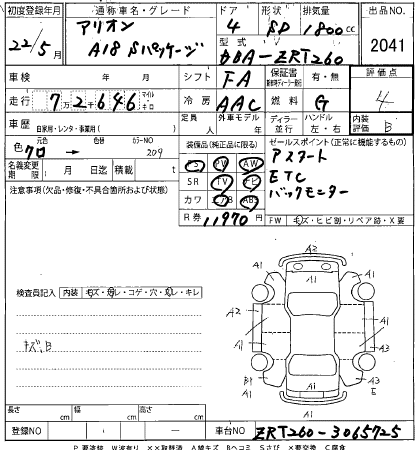 初度登録年月 通称車名・グレード ドア 形状 排気量 出品NO.
22/5月 アリオン A18 Sパッケージ 4 SD 1800cc 2041
型式 DBA-ZRT260
車検 年 月 シフト FA 保証書 有・無 評価点
走行 7万2千646 マイル キロ 冷房 AAC 燃料 G 4
車歴 自家用・レンタ・事業用( ) 定員 人 外車モデル 年 ディーラー 並行 ハンドル 左・右 内装評価 B
色 元色 クロ 色替 カラーNO 209
装備品(純正品に限る) セールスポイント(正常に機能するもの)
名義変更期限 月 日迄 積載 t
PS PW AW アスフート
SR TV ナビ ETC
カワ エアB ABS バックモニター
R券 11970円
注意事項(欠品・修復・不具合箇所および状態)
FW キズ・ヒビ割・リペア跡・X要
検査員記入 内装 キズ・汚レ・コゲ・穴・スレ・キレ
キズ、B
A2
A1 A1
A1
A2 A1
A1 A3
B1 A1 A3 E
A1
A1
長さ cm 幅 cm 高さ cm
登録NO 車台NO ZRT260-3065725
P 要塗装 W波有り ××取替済 A線キズ Bヘコミ Sさび ×要交換 C腐食